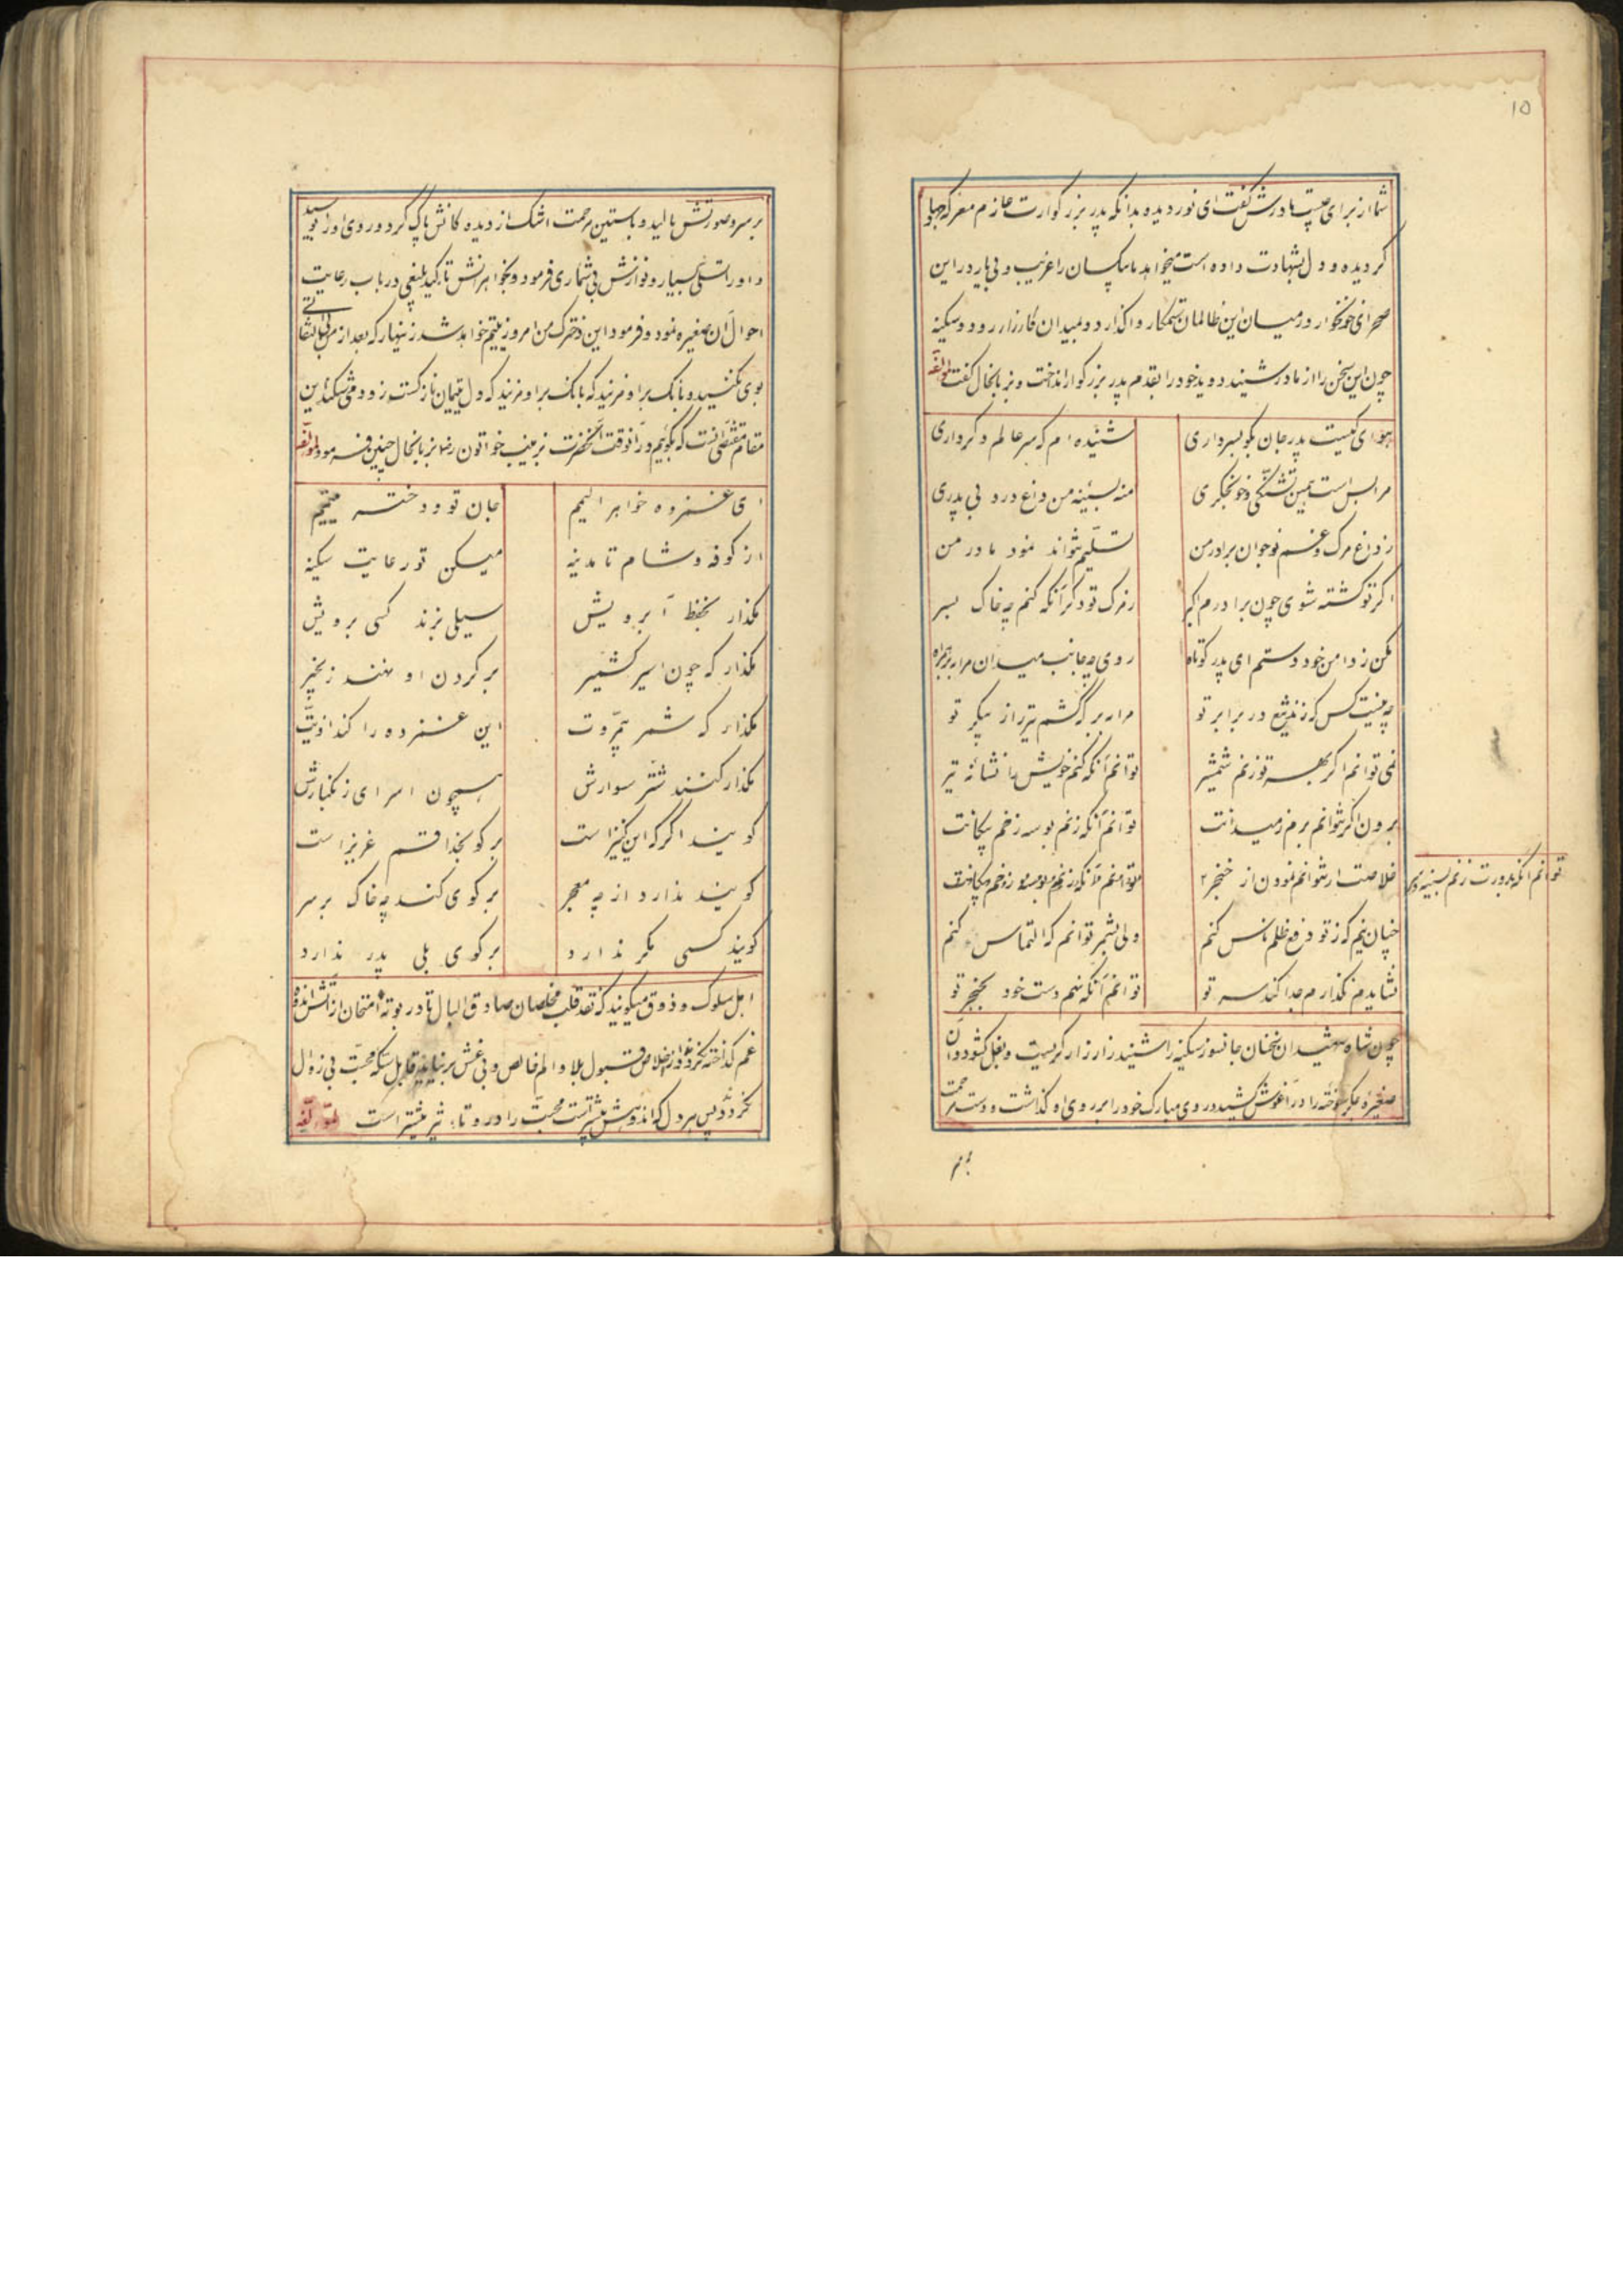 ۱۵
شما از برای چیست مادرش گفت ای نور دیده بدانکه پدر بزرگوارت عازم معرکه جهاد
گردیده و دل بشهادت داده است میخواهد ما بیکسان را غریب و بی یار در این
صحرای خونخوار در میان این ظالمان ستمکار واگذارد و بمیدان کارزار رود و سکینه
چون این سخن را از مادر شنید دوید خود را بقدم پدر بزرگوار انداخت و بزبانحال گفت لمؤلفه
هوای کیست پدر جان بگو بسر داری شنیده ام که سر عالم دگر داری
مرا بس است همین تشنگی و خونجگری منه بسینه من داغ درد بی پدری
ز داغ مرگ و غم نوجوان برادر من تسلیم نتواند نمود مادر من
اگر تو کشته شوی چون برادرم اکبر ز مرگ تو دگر آنکه کنم چه خاک بسر
مکن ز دامن خود دستم ای پدر کوتاه روی چه جانب میدان مرا ببر همراه
چه نیست کس که زند تیغ در برابر تو مرا ببر که کشم تیر از پیکر تو
نمی توانم اگر بهر تو زنم شمشیر توانم آنکه کنم خویش را نشانه تیر
برون اگر نتوانم برم ز میدانت توانم آنکه زنم بوسه زخم پیکانت
خلاصت ار نتوانم نمودن از خنجر ۲ توانم آنکه زنم بوسه زخم پیکانت
توانم آنکه بدورت زنم بسینه و سر
چنان نیم که ز تو دفع ظلم ناس کنم ولی بشمر توانم که التماس کنم
نشاید من نگذارم جدا کند سر تو توانم آنکه نهم دست خود بخنجر تو
چون شاه شهیدان سخنان جانسوز سکینه را شنید زار زار گریست و بغل گشود و آن
صغیره جگر سوخته را در آغوش کشید و روی مبارک خود را بر روی او گذاشت و دست مرحمت
بر سر
بر سر و صورتش مالید و باستین مرحمت اشک از دیده گانش پاک کرد و روی او را بوسید
و او را تسلی بسیار و نوازش بی شماری فرمود و بخواهرانش تاکید بلیغی در باب رعایت
احوال آن صغیره نمود و فرمود این دخترک من امروز یتیم خواهد شد زینهار که بعد از من بی التفاتی
بوی نکنید و بانک بر او مزنید که بانک بر او مزنید که دل یتیمان نازکست زود می شکند این
مقام مقتضی انست که بگوئیم در آنوقت آنحضرت بزینب خواتون رضا بزبانحال چنین فرمود لمؤلفه
ای غمزده خواهر الیمم جان تو و دختر یتیمم
از کوفه و شام تا مدینه میکن تو رعایت سکینه
مگذار بحفظ آبرویش سیلی بزند کسی برویش
مگذار که چون اسیر کشمیر بر گردن او نهند زنجیر
مگذار که شمر بیمروت این غمزده را کند اذیت
مگذار کنند شتر سوارش همچون اسرای زنگبارش
گویند اگر که این کنیز است بر گو بخدا قسم عزیز است
گویند ندارد از چه معجر بر گوی کند چه خاک بر سر
گویند کسی مگر ندارد بر گوی بلی پدر ندارد
اهل سلوک و ذوق میگویند که نقد قلب مخلصان صادق البال تا در بوته امتحان از آتش اندوه
غم گداخته نگردد از اخلاص قبول بلا و الم خالص و بی غش بر نیاید قابل سکه محبت بی زوال
نگردد پس هر دل که اندوهش بیشتر است محبت را در او تاثیر بیشتر است لمؤلفه